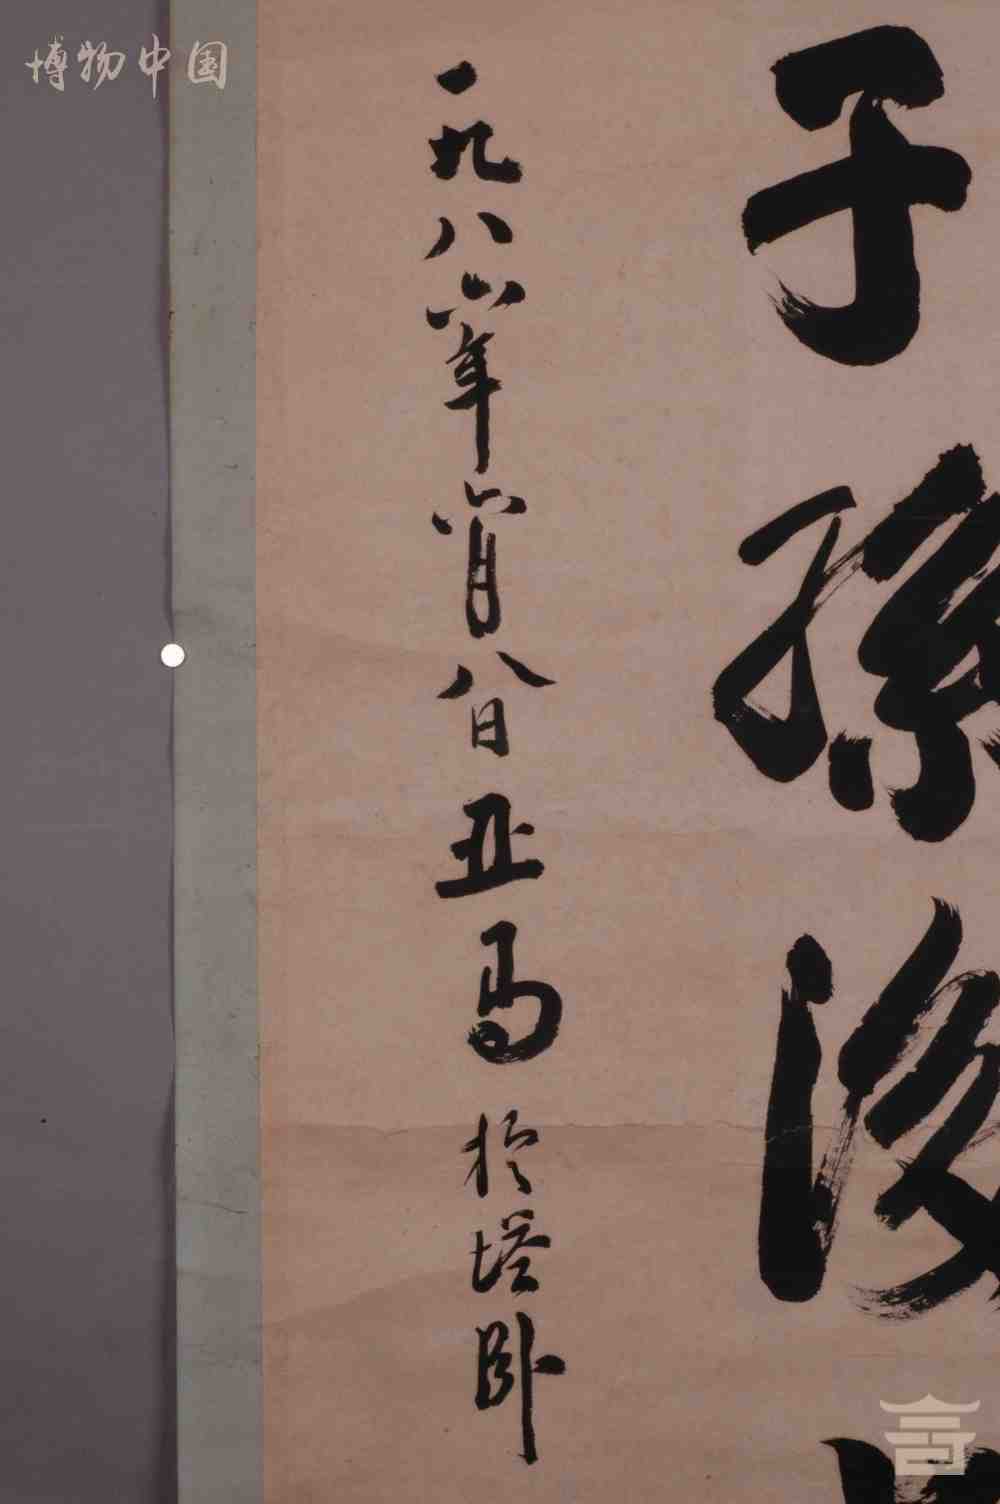 博物中国
子孫後
一九八六年六月八日亚马於塔卧